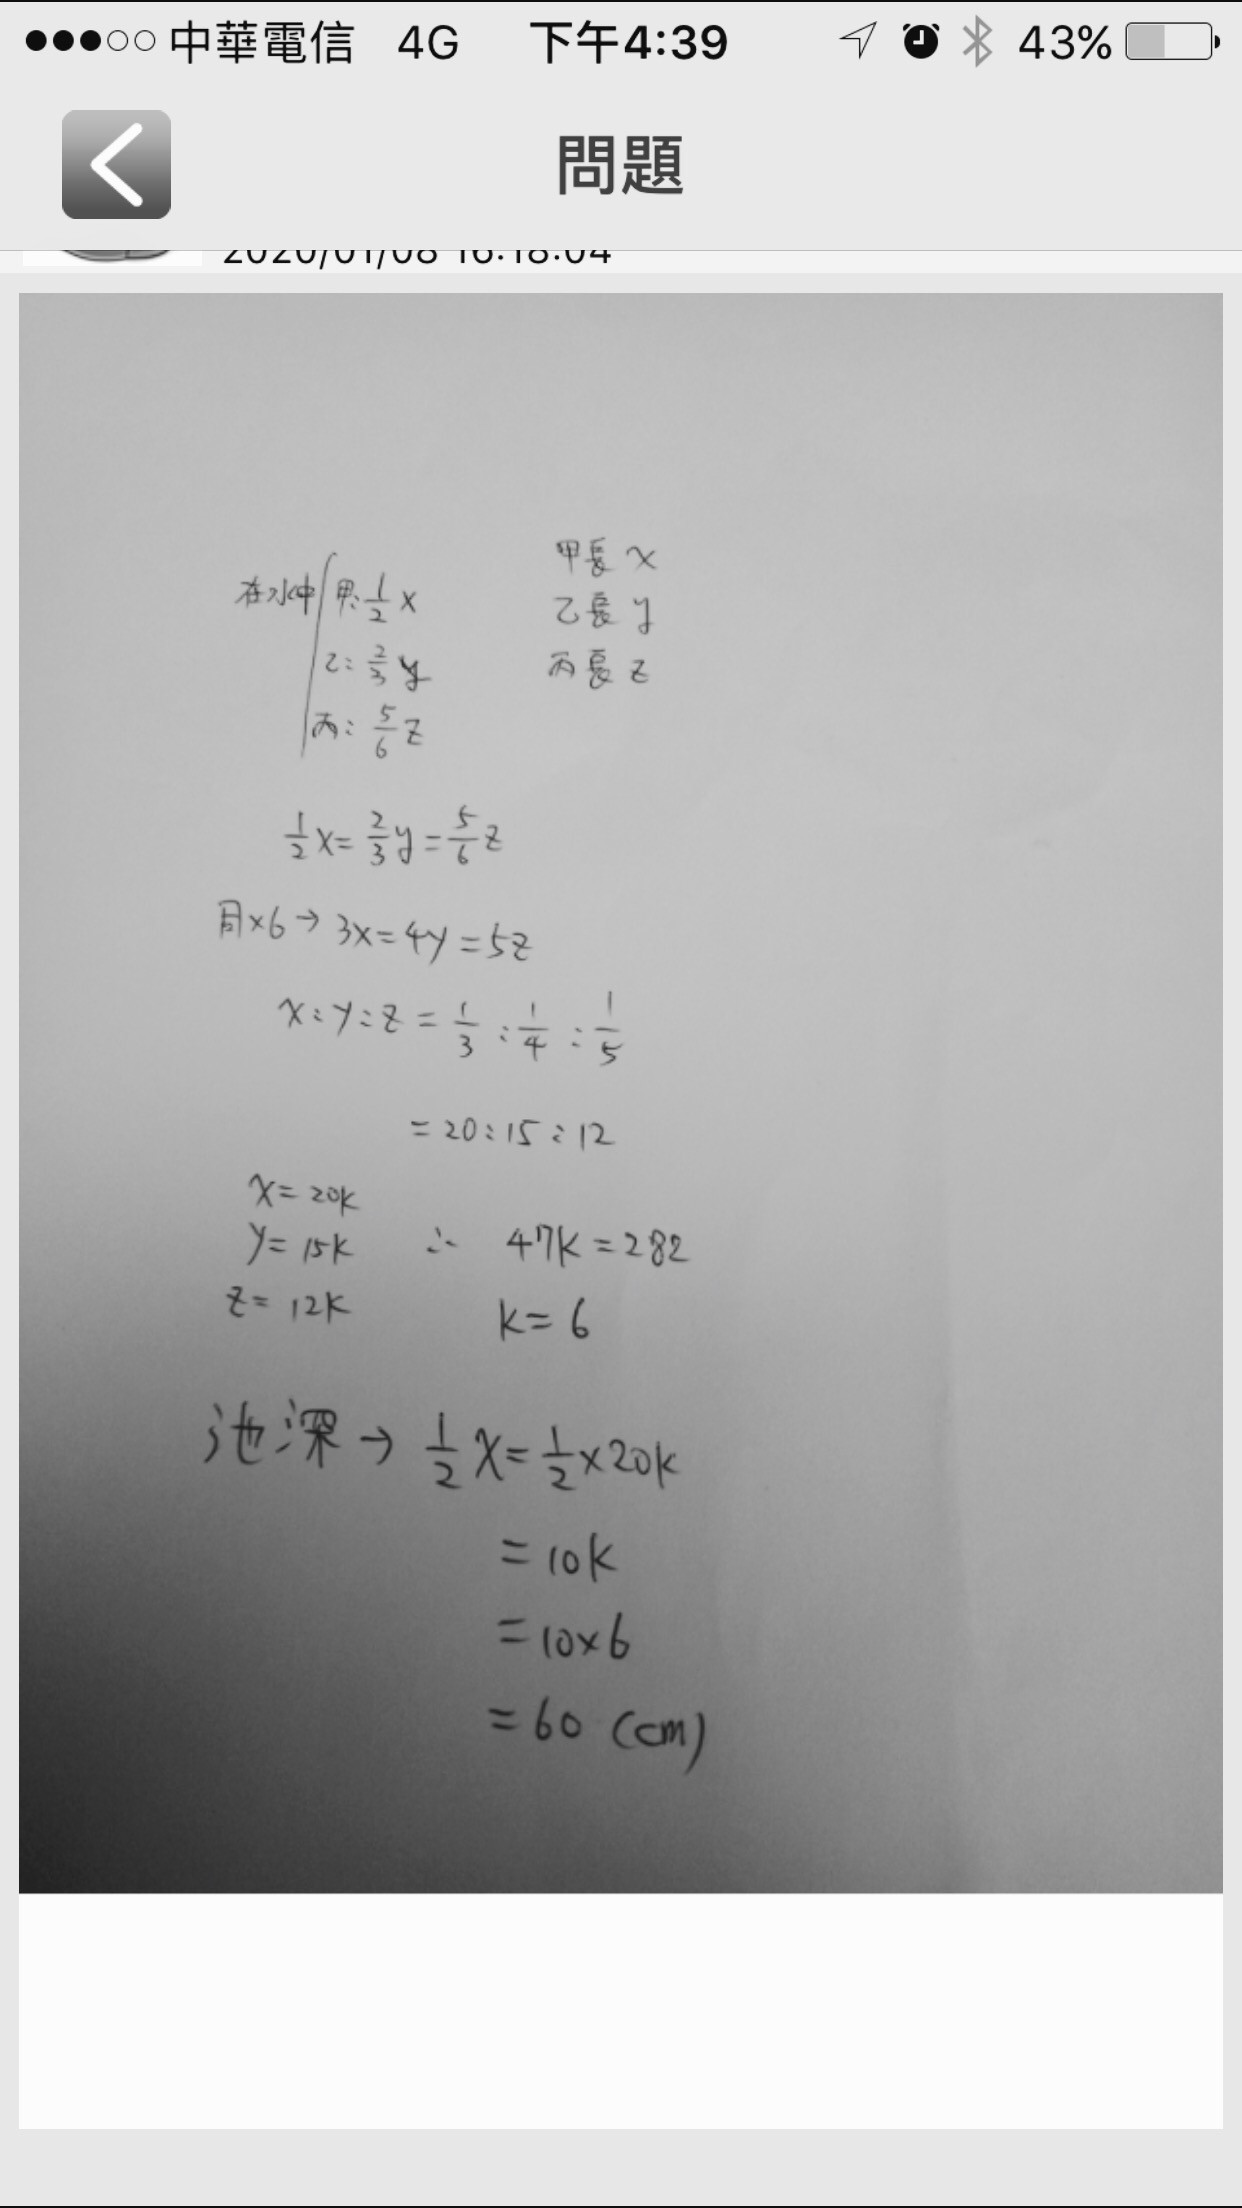 中華電信 4G 下午4:39 43%
問題
2020/01/08 16:18:04
在水中 甲: 1/2 x
乙: 2/3 y
丙: 5/6 z
甲長 x
乙長 y
丙長 z
1/2 x = 2/3 y = 5/6 z
同×6 → 3x = 4y = 5z
x : y : z = 1/3 : 1/4 : 1/5
= 20 : 15 : 12
x = 20k
y = 15k
z = 12k
∴ 47k = 282
k = 6
池深 → 1/2 x = 1/2 × 20k
= 10k
= 10×6
= 60 (cm)